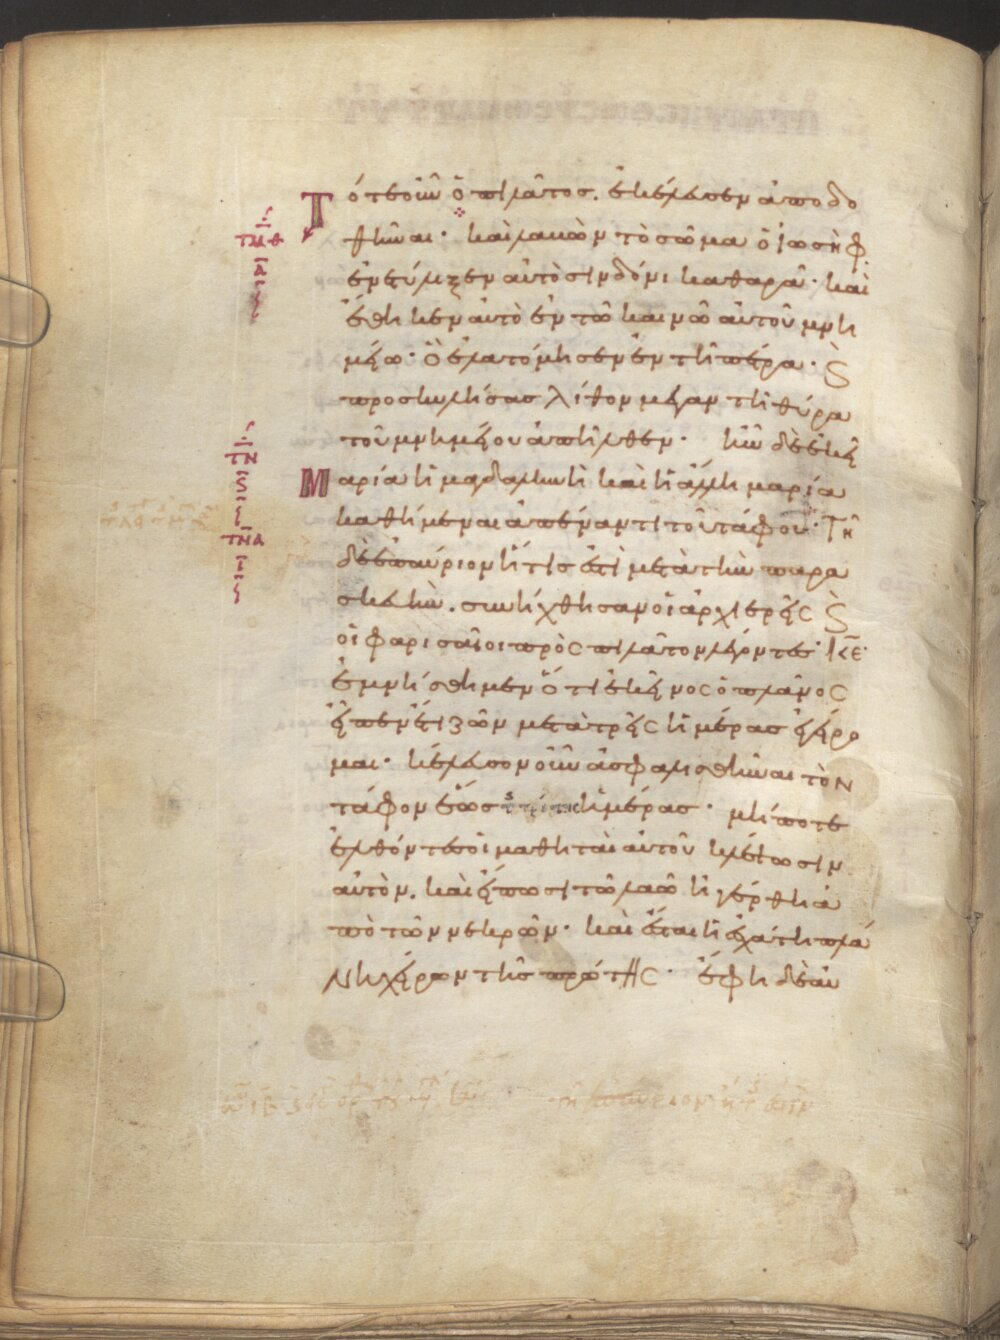 Τότε οὖν ὁ πιλᾶτος. ἐκέλευσεν ἀποδο
θῆναι· καὶ λαβὼν τὸ σῶμα ὁ ἰωσὴφ
ἐνετύλιξεν αὐτὸ σινδόνι καθαρᾶ· καὶ
ἔθηκεν αὐτὸ ἐν τῶ καινῶ αὐτοῦ μνη
μείω· ὃ ἐλατόμησεν ἐν τῆ πέτρα· ϗ
προσκυλίσας λίθον μέγαν τῆ θύρα
τοῦ μνημείου ἀπῆλθεν· ἦν δὲ ἐκεῖ
Μαρία ἡ μαγδαληνὴ καὶ ἡ ἄλλη μαρία
καθήμεναι ἀπέναντι τοῦ τάφου· Τῆ
δὲ ἐπαύριον ἥτις ἐστὶ μετὰ τὴν παρα
σκευὴν. συνήχθησαν οἱ ἀρχιερεῖς ϗ
οἱ φαρισαῖοι πρὸς πιλᾶτον λέγοντες· κ̅ε̅·
ἐμνήσθημεν ὅτι ἐκεῖνος ὁ πλάνος
εἶπεν ἔτι ζῶν μετὰ τρεῖς ἡμέρας ἐγείρο
μαι· κέλευσον οὖν ἀσφαλισθῆναι τὸν
τάφον ἕως τρίτης ἡμέρας· μήποτε
ἐλθόντες οἱ μαθηταὶ αὐτοῦ κλέψωσιν
αὐτὸν. καὶ εἴπωσι τῶ λαῶ ἠγέρθη ἀ
πὸ τῶν νεκρῶν· καὶ ἔσται ἡ ἐσχάτη πλά
νη χείρων τῆς πρώτης· ἔφη δὲ αὐ
τ̅μ̅θ
α̅
τ̅ν̅
ϛ̅
τ̅ν̅α